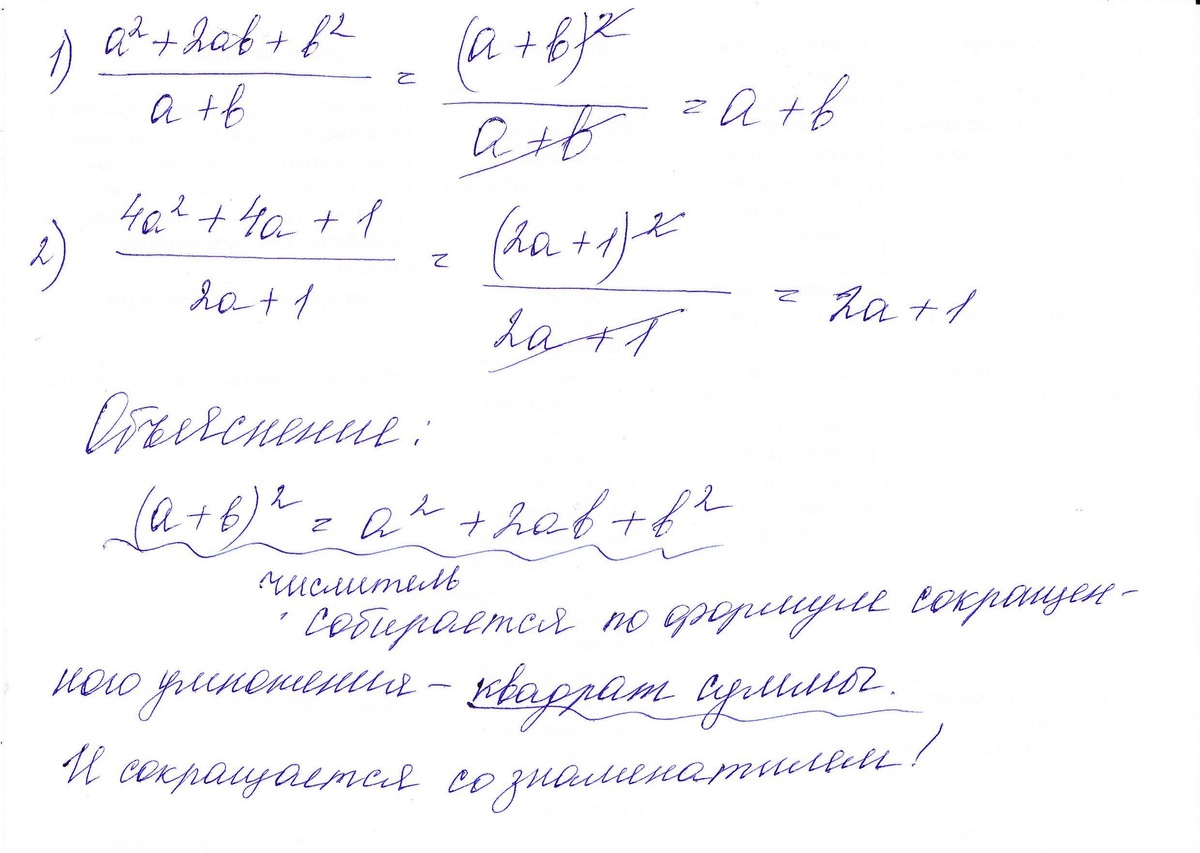 1) (a² + 2ab + b²) / (a + b) = (a + b)² / (a + b) = a + b
2) (4a² + 4a + 1) / (2a + 1) = (2a + 1)² / (2a + 1) = 2a + 1
Объяснение:
(a + b)² = a² + 2ab + b²
числитель
собирается по формуле сокращен-
ного умножения – квадрат суммы.
И сокращается со знаменатилем!